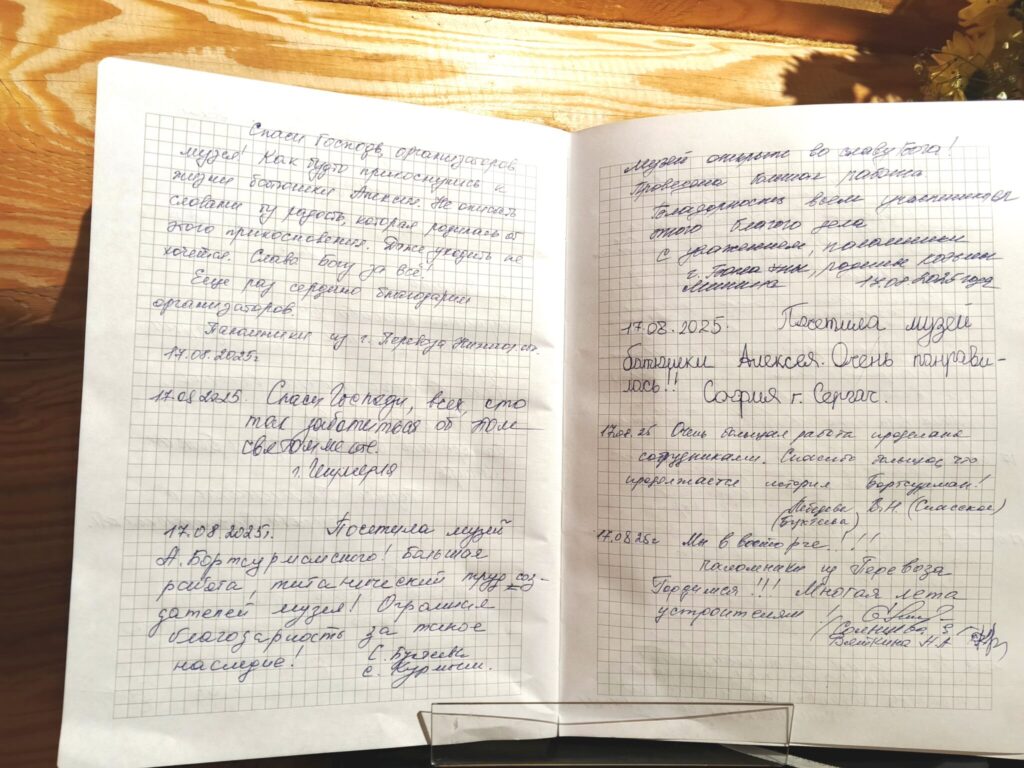 Спаси Господь организаторов
музея! Как будто прикоснулись к
жизни батюшки Алексия. Не описать
словами ту радость, которая родилась от
этого прикосновения. Даже уходить не
хочется. Слава Богу за всё!
Еще раз сердечно благодарим
организаторов.
Паломники из г. Перевоза
17.08.2025г
17.08.2025. Спаси Господи, всех кто
так заботиться об
святом месте.
г. Шумерля
17.08.2025г. Посетила музей
А. Бортсурманского! Большая
работа, титанический труд соз-
дателей музея! Огромная
благодарность за такое
наследие!
с. Курмыш.
Музей открыт во славу Бога!
Проведена большая работа
Благодарность всем участникам
этого благого дела
с уважением, паломники
17.08.2025 года
17.08.2025. Посетила музей
батюшки Алексея. Очень понрави-
лось!!
София г. Сергач.
17.08.25 Очень большая работа проделана
сотрудниками. Спасибо большое, что
продолжается история Бортсурман!
Лебедева В.Н (Спасское)
17.08.25г Мы в восторге!!!
паломники из Перевоза
Гордимся!!! Многая лета
устроителям!
Вяткина Н.А